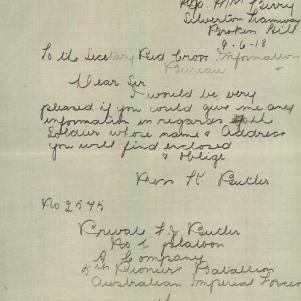 C/o. Mr Perry
Silverton Tramway
Broken Hill
9-6-18
To the Secetary Red Cross Information
Bureau
Dear Sir
I would be very
pleased if you could give me any
information in regards of the
Soldier whose name & Address
you will find enclosed
& oblige
Butler
No 2545
Private F J Butler
No 1 platoon
A Company
Pioneer Battalion
Australian Imperial Forces